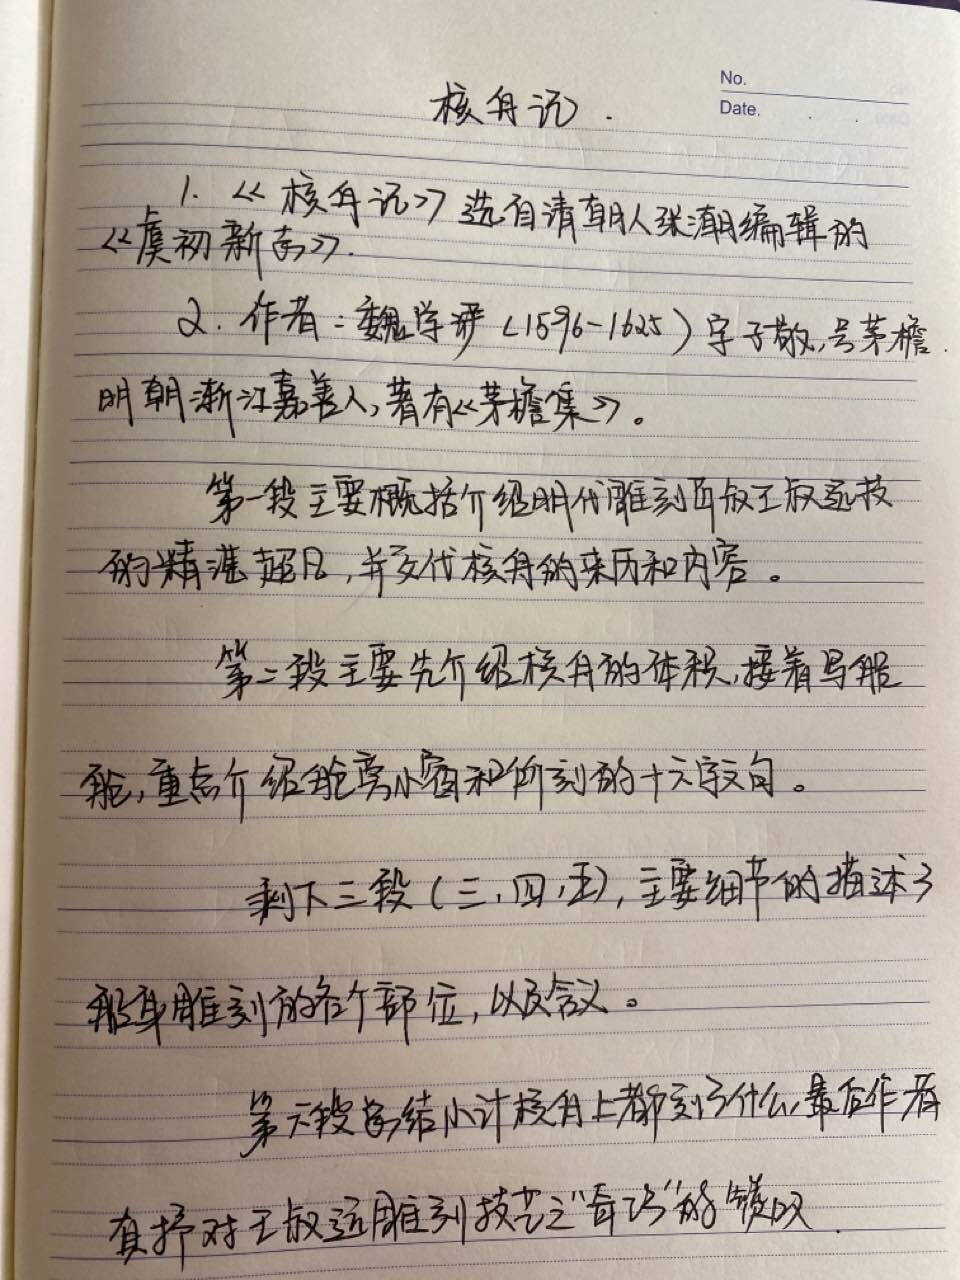 No.
Date.
核舟记.
1.《核舟记》选自清朝人张潮编辑的
《虞初新志》.
2.作者:魏学洢(1596-1625)字子敬,号茅檐.
明朝浙江嘉善人,著有《茅檐集》。
第一段主要概括介绍明代雕刻 王叔远技
的精湛超凡,并交代核舟的来历和内容。
第二段主要先介绍核舟的体积,接着写船
舱,重点介绍舱旁小窗和所刻的十六字文句。
剩下三段(三,四,五),主要细节的描述了
船身雕刻的各个部位,以及含义。
第六段 结小计核舟上都刻了什么,最后作者
直抒对王叔远雕刻技艺之“奇巧”的赞叹.